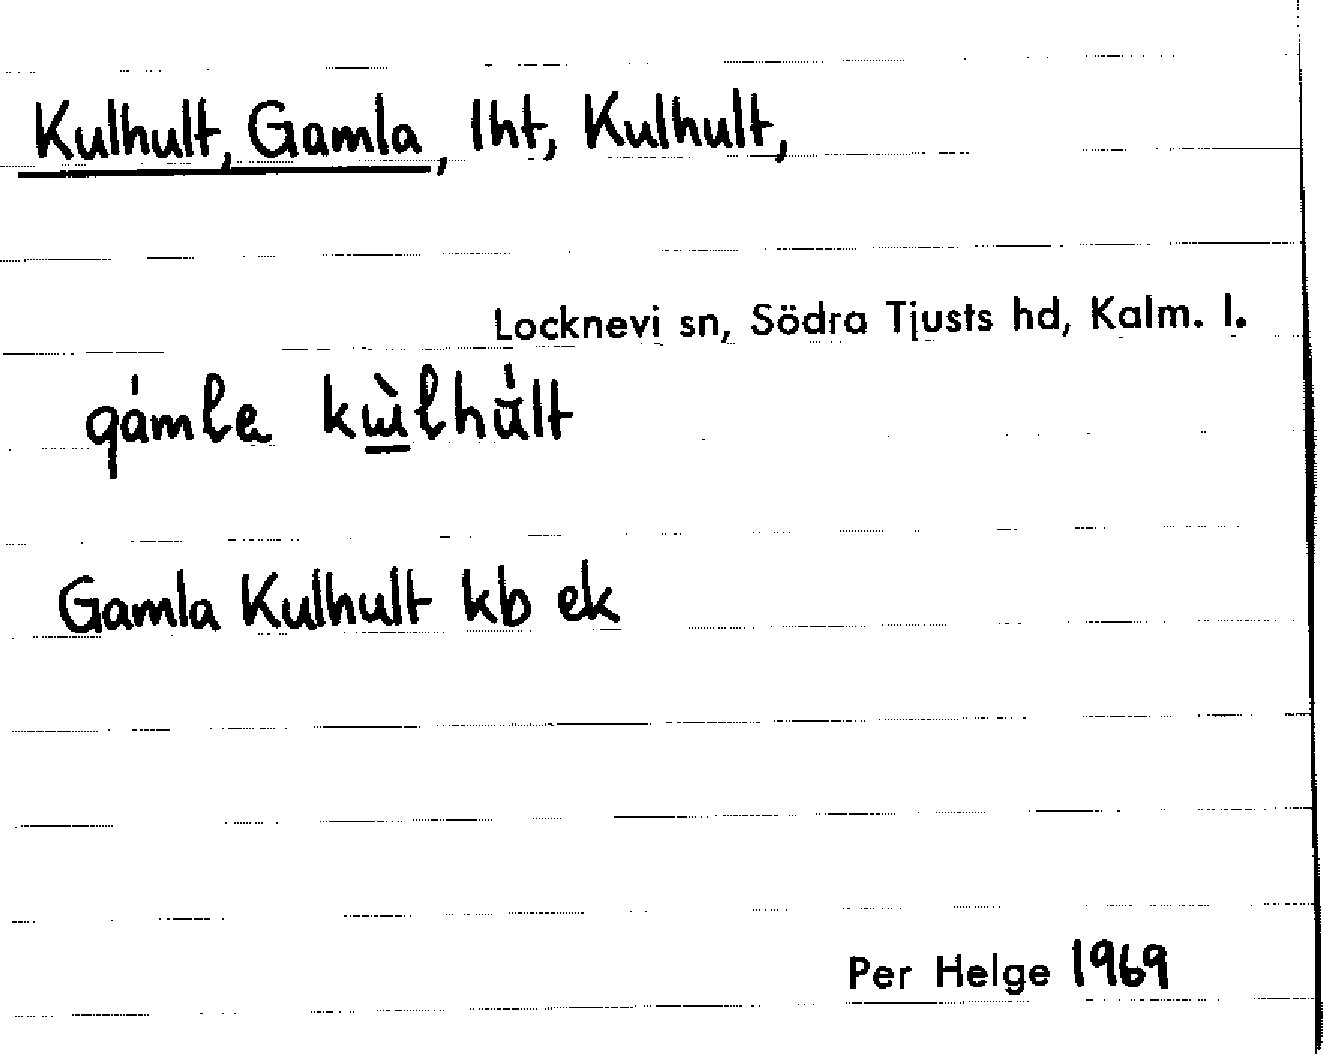 Kulhult, Gamla, lht, Kulhult,
Locknevi sn, Södra Tjusts hd, Kalm. l.
Gamla Kulhult kb ek
Per Helge 1969